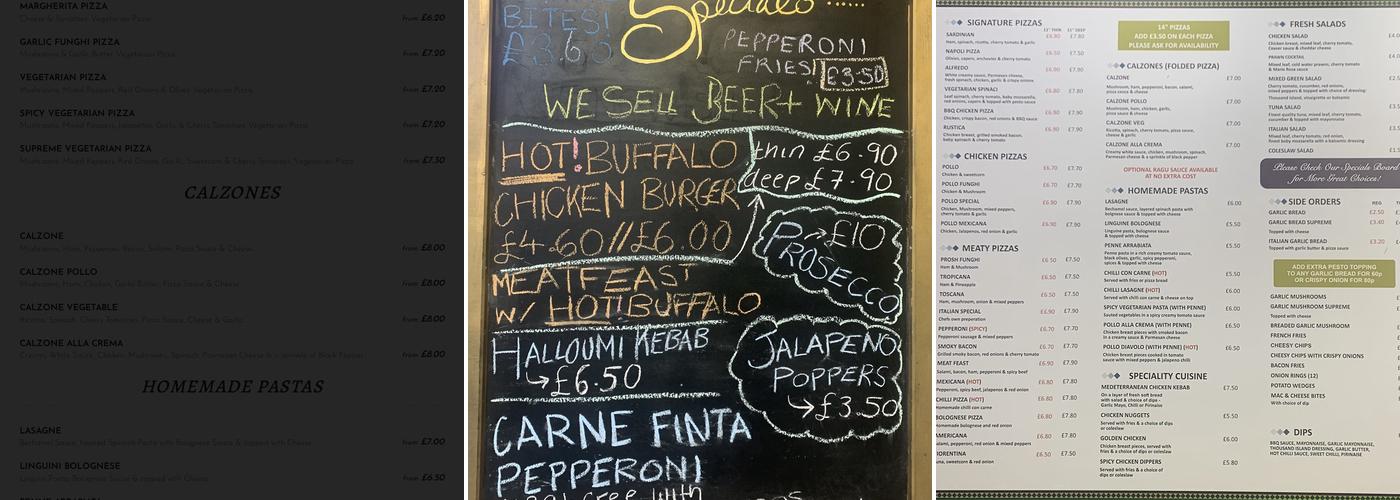 MARGHERITA PIZZA
Cheese & Tomatoes, Vegetarian Pizza
from £6.20
GARLIC FUNGHI PIZZA
Mushrooms & Garlic Butter, Vegetarian Pizza
from £7.20
VEGETARIAN PIZZA
Mushrooms, Mixed Peppers, Red Onions & Olives, Vegetarian Pizza
from £7.20
SPICY VEGETARIAN PIZZA
Mushrooms, Mixed Peppers, Jalapeños, Garlic & Cherry Tomatoes, Vegetarian Pizza
from £7.20
SUPREME VEGETARIAN PIZZA
Mushrooms, Mixed Peppers, Red Onions, Garlic, Sweetcorn & Cherry Tomatoes, Vegetarian Pizza
from £7.30
CALZONES
CALZONE
Mushrooms, Ham, Pepperoni, Bacon, Salami, Pizza Sauce & Cheese
from £8.00
CALZONE POLLO
Mushrooms, Ham, Chicken, Garlic Butter, Pizza Sauce & Cheese
from £8.00
CALZONE VEGETABLE
Ricotta, Spinach, Cherry Tomatoes, Pizza Sauce, Cheese & Garlic
from £8.00
CALZONE ALLA CREMA
from £8.00
HOMEMADE PASTAS
LASAGNE
from £7.00
LINGUINI BOLOGNESE
from £6.50
BITES!
Specials ......
PEPPERONI
FRIES! £3.50
WE SELL BEER + WINE
HOT! BUFFALO
CHICKEN BURGER
£4.60//£6.00
thin £6.90
deep £7.90
MEATFEAST
W/ HOT! BUFFALO
PROSECCO → £10
HALLOUMI KEBAB
→ £6.50
JALAPENO
POPPERS
→ £3.50
CARNE FINTA
PEPPERONI
SIGNATURE PIZZAS
11" THIN 11" DEEP
SARDINIAN £6.80 £7.80
Ham, spinach, ricotta, cherry tomato & garlic
NAPOLI PIZZA £6.50 £7.50
Olives, capers, anchovies & cherry tomato
ALFREDO £6.90 £7.90
White creamy sauce, Parmesan cheese,
fresh spinach, chicken, garlic & crispy onions
VEGETARIAN SPINACI £6.80 £7.80
Leaf spinach, cherry tomato, baby mozzarella,
red onions, capers & topped with pesto sauce
BBQ CHICKEN PIZZA £6.90 £7.90
Chicken, crispy bacon, red onions & BBQ sauce
RUSTICA £6.90 £7.90
Chicken breast, grilled smoked bacon,
baby spinach & cherry tomato
CHICKEN PIZZAS
POLLO £6.70 £7.70
Chicken & sweetcorn
POLLO FUNGHI £6.70 £7.70
Chicken & Mushroom
POLLO SPECIAL £6.90 £7.90
Chicken, Mushroom, mixed peppers,
cherry tomato & garlic
POLLO MEXICANA £6.90 £7.90
Chicken, Jalapenos, red onion & garlic
MEATY PIZZAS
PROSH FUNGHI £6.50 £7.50
Ham & Mushroom
TROPICANA £6.50 £7.50
Ham & Pineapple
TOSCANA £6.50 £7.50
Ham, mushroom, onion & mixed peppers
ITALIAN SPECIAL £6.90 £7.90
Chefs own preparation
PEPPERONI (SPICY) £6.70 £7.70
SMOKY BACON £6.70 £7.70
Grilled smoky bacon, red onions & cherry tomato
MEAT FEAST £6.90 £7.90
Salami, bacon, ham, pepperoni & spicy beef
MEXICANA (HOT) £6.80 £7.80
Pepperoni, spicy beef, jalapenos & red onion
CHILLI PIZZA (HOT) £6.80 £7.80
Homemade chilli con carne
BOLOGNESE PIZZA £6.80 £7.80
Homemade bolognese and red onion
AMERICANA £6.80 £7.80
Salami, pepperoni, red onion & mixed peppers
FIORENTINA £6.50 £7.50
Tuna, sweetcorn & red onion
14" PIZZAS
ADD £3.50 ON EACH PIZZA
PLEASE ASK FOR AVAILABILITY
CALZONES (FOLDED PIZZA)
CALZONE £7.00
Mushroom, ham, pepperoni, bacon, salami,
pizza sauce & cheese
CALZONE POLLO £7.00
Mushroom, ham, chicken, garlic,
pizza sauce & cheese
CALZONE VEG £7.00
Ricotta, spinach, cherry tomato, pizza sauce,
cheese & garlic
CALZONE ALLA CREMA £7.00
Creamy white sauce, chicken, mushroom, spinach,
Parmesan cheese & a sprinkle of black pepper
OPTIONAL RAGU SAUCE AVAILABLE
AT NO EXTRA COST
HOMEMADE PASTAS
LASAGNE £6.00
Bechamel sauce, layered spinach pasta with
bolgnese sauce & topped with cheese
LINGUINE BOLOGNESE £5.50
Linguine pasta, bolognese sauce
& topped with cheese
PENNE ARRABIATA £5.50
Penne pasta in a rich creamy tomato sauce,
black olives, garlic, spicy pepperoni,
spices & topped with cheese
CHILLI CON CARNE (HOT) £5.50
Served with fries or pizza bread
CHILLI LASAGNE (HOT) £6.00
Served with chilli con carne & cheese on top
SPICY VEGETARIAN PASTA (WITH PENNE) £6.00
Sauted vegetables in a spicy creamy tomato sauce
POLLO ALLA CREMA (WITH PENNE) £6.50
Chicken breast pieces with smoked bacon
in a creamy sauce & Parmesan cheese
POLLO DIAVOLO (WITH PENNE) (HOT) £6.50
Chicken breast pieces cooked in tomato
sauce with mixed peppers & jalapeno chilli
SPECIALITY CUISINE
MEDETERRANIAN CHICKEN KEBAB £7.50
On a layer of fresh soft bread
with salad & choice of dip -
Garlic Mayo, Chilli or Pirinaise
CHICKEN NUGGETS £5.50
Served with fries & choice of dip
or coleslaw
GOLDEN CHICKEN £6.00
Chicken breast pieces, served with
fries & choice of dip or coleslaw
SPICY CHICKEN DIPPERS £5.80
Served with fries & choice of
dips or coleslaw
FRESH SALADS
CHICKEN SALAD
Chicken breast, mixed leaf, cherry tomato,
Caesar sauce & cheddar cheese
PRAWN COCKTAIL
Mixed leaf, cold water prawns, cherry tomato
& Marie Rose sauce
MIXED GREEN SALAD
Cherry tomato, cucumber, red onions,
mixed peppers & topped with choice of dressing:
Thousand island, vinaigrette or balsamic
TUNA SALAD
Finest quality tuna, mixed leaf, cherry tomato,
cucumber & topped with mayonnaise
ITALIAN SALAD
Mixed leaf, cherry tomato, red onion,
baby mozzarella with a balsamic dressing
COLESLAW SALAD
Please Check Our Specials Board
for More Great Choices!
SIDE ORDERS
REG
GARLIC BREAD £2.50
GARLIC BREAD SUPREME £3.40
Topped with cheese
ITALIAN GARLIC BREAD £3.20
Topped with garlic butter & pizza sauce
ADD EXTRA PESTO TOPPING
TO ANY GARLIC BREAD FOR 60p
OR CRISPY ONION FOR 80p
GARLIC MUSHROOMS
GARLIC MUSHROOM SUPREME
Topped with cheese
BREADED GARLIC MUSHROOM
FRENCH FRIES
CHEESY CHIPS
CHEESY CHIPS WITH CRISPY ONIONS
BACON FRIES
ONION RINGS (12)
POTATO WEDGES
MAC & CHEESE BITES
With choice of dip
DIPS
BBQ SAUCE, MAYONNAISE, GARLIC MAYONNAISE,
THOUSAND ISLAND DRESSING, GARLIC BUTTER,
HOT CHILLI SAUCE, SWEET CHILLI, PIRINAISE